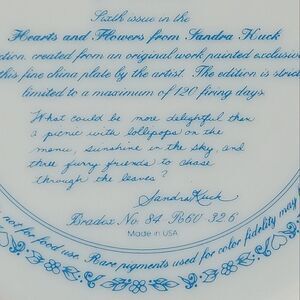 Sixth issue in the
Hearts and Flowers from Sandra Kuck
ction created from an original work painted exclusive
this fine china plate by the artist. The edition is strict
limited to a maximum of 120 firing days
What could be more delightful than
a picnic with lollipops on the
menu, sunshine in the sky, and
three furry friends to chase
through the leaves?
Sandra Kuck
Bradex No. 84 R60 32 6
Made in USA
not for food use. Rare pigments used for color fidelity may